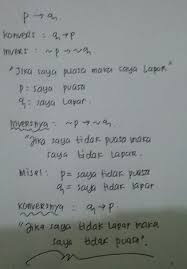 p → q
konvers : q → p
invers : ~p → ~q
"Jika saya puasa maka saya lapar"
p = saya puasa
q = saya lapar.
Inversnya : ~p → ~q.
"Jika saya tidak puasa maka
saya tidak lapar.
misal : p = saya tidak puasa
q = saya tidak lapar
konversnya : q → p.
"Jika saya tidak lapar maka
saya tidak puasa".